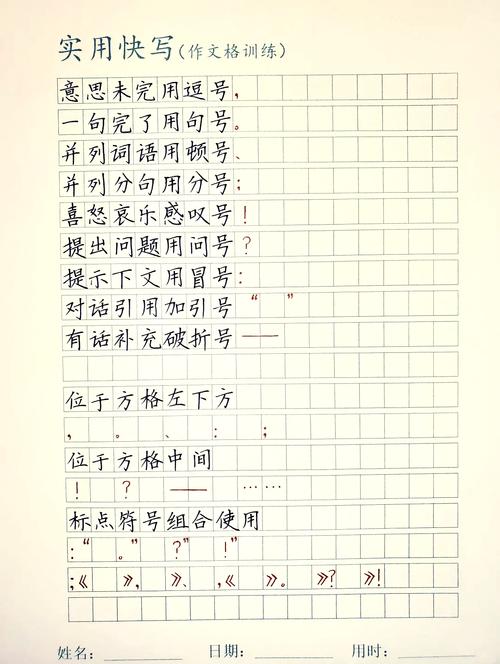 实用快写(作文格训练)
意思未完用逗号，
一句完了用句号。
并列词语用顿号、
并列分句用分号；
喜怒哀乐感叹号！
提出问题用问号？
提示下文用冒号：
对话引用加引号“ ”
有话补充破折号——
位于方格左下方
， 。 、 ： ；
位于方格中间
！ ？ —— ……
标点符号组合使用
：“ 。” ？” ！”
；《 》， 》、 ，《 》。 》？ 》！
姓名： 日期： 用时：